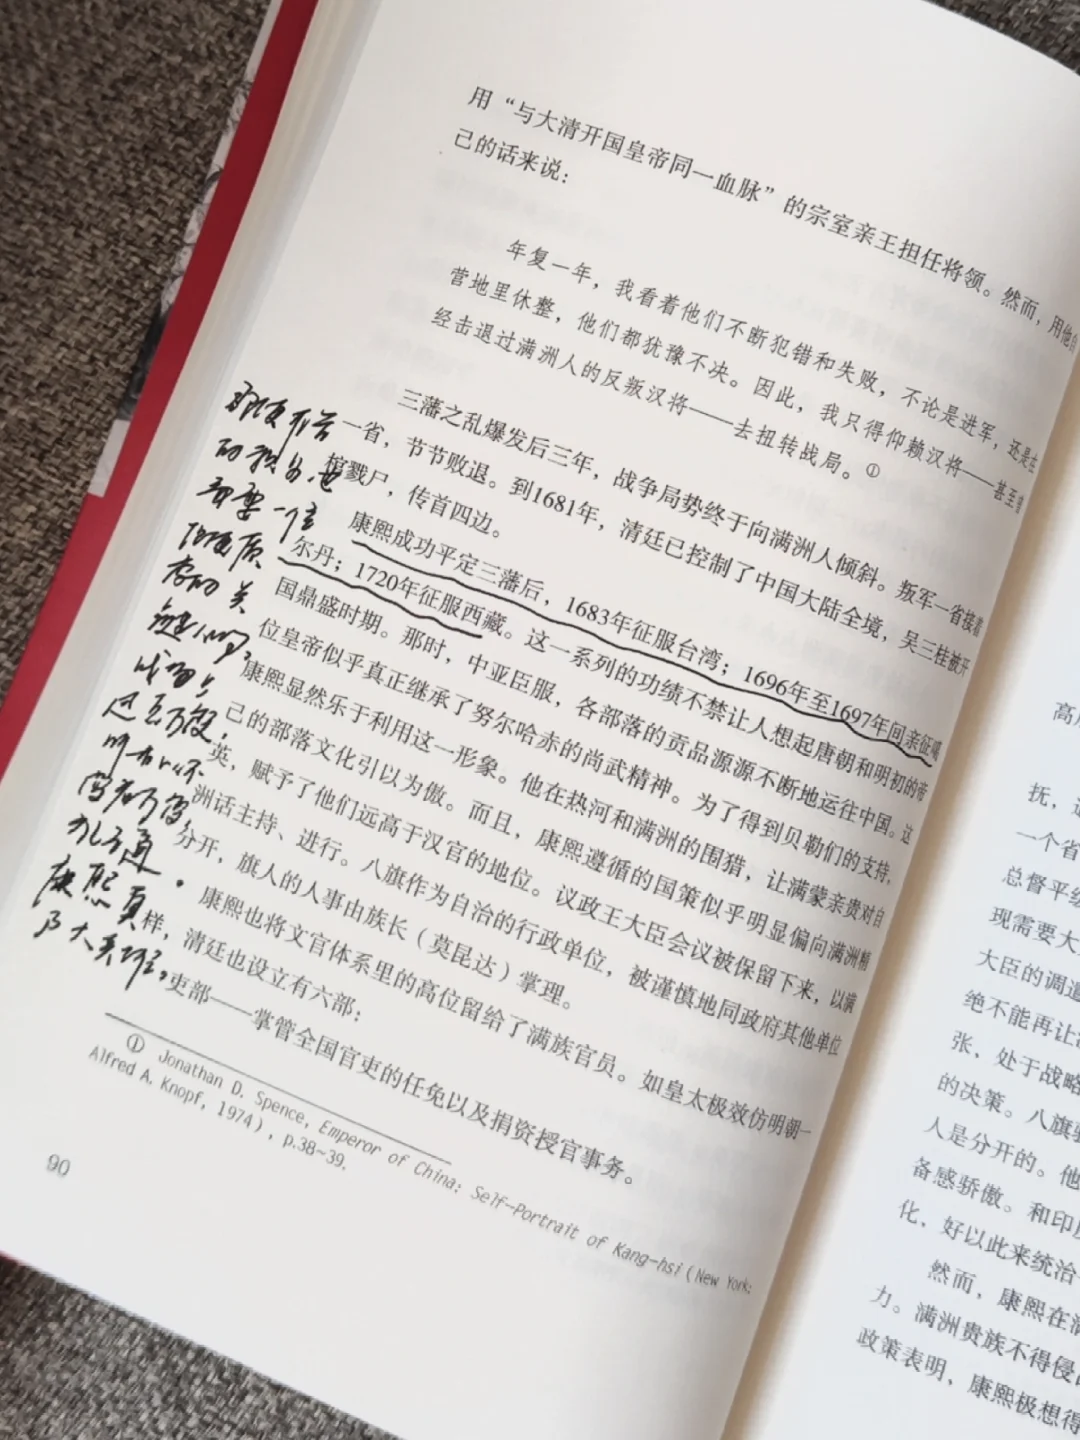 用“与大清开国皇帝同一血脉”的宗室亲王担任将领。然而，用他自
己的话来说：
年复一年，我看着他们不断犯错和失败，不论是进军，还是在
营地里休整，他们都犹豫不决。因此，我只得仰赖汉将——甚至曾
经击退过满洲人的反叛汉将——去扭转战局。①
三藩之乱爆发后三年，战争局势终于向满洲人倾斜。叛军一省接着
一省，节节败退。到1681年，清廷已控制了中国大陆全境，吴三桂被开
棺戮尸，传首四边。
康熙成功平定三藩后，1683年征服台湾；1696年至1697年间亲征噶
尔丹；1720年征服西藏。这一系列的功绩不禁让人想起唐朝和明初的帝
国鼎盛时期。那时，中亚臣服，各部落的贡品源源不断地运往中国。这
位皇帝似乎真正继承了努尔哈赤的尚武精神。为了得到贝勒们的支持，
康熙显然乐于利用这一形象。他在热河和满洲的围猎，让满蒙亲贵对自
己的部落文化引以为傲。而且，康熙遵循的国策似乎明显偏向满洲精
英，赋予了他们远高于汉官的地位。议政王大臣会议被保留下来，以满
洲话主持、进行。八旗作为自治的行政单位，被谨慎地同政府其他单位
分开，旗人的人事由族长（莫昆达）掌理。
康熙也将文官体系里的高位留给了满族官员。如皇太极效仿明朝一
样，清廷也设立有六部：
吏部——掌管全国官吏的任免以及捐资授官事务。
① Jonathan D. Spence, Emperor of China: Self-Portrait of Kang-hsi (New York:
Alfred A. Knopf, 1974), p.38~39.
90
都要一个
康熙真
乃大英雄。
高
抚，
一个省
总督平级
现需要大
大臣的调遣
绝不能再让
张，处于战略
的决策。八旗
人是分开的。他
备感骄傲。和印度
化，好以此来统治
然而，康熙在满
力。满洲贵族不得侵
政策表明，康熙极想得